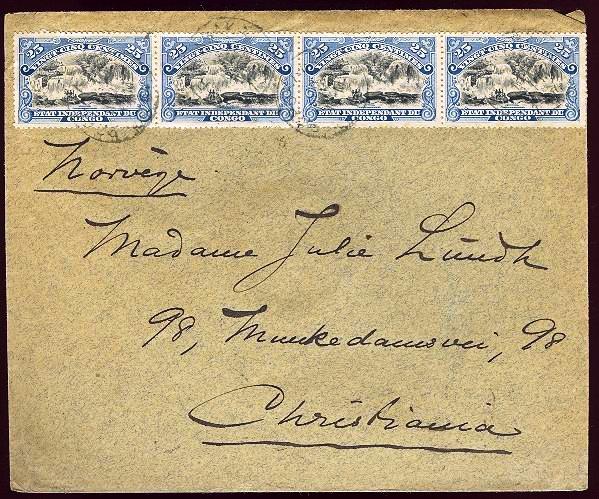 25 VINGT CINQ CENTIMES 25 25 VINGT CINQ CENTIMES 25 25 VINGT CINQ CENTIMES 25 25 VINGT CINQ CENTIMES 25
ETAT INDEPENDANT DU ETAT INDEPENDANT DU ETAT INDEPENDANT DU ETAT INDEPENDANT DU
CONGO CONGO CONGO CONGO
Norvège
Madame Julie Lundh
98, Munkedamsvei, 98
Christiania